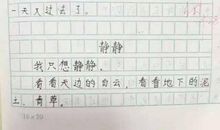 一天又过去了。
静静
我只想静静，
看看天边的白云，看看地下的泥
土、青草。
15×20